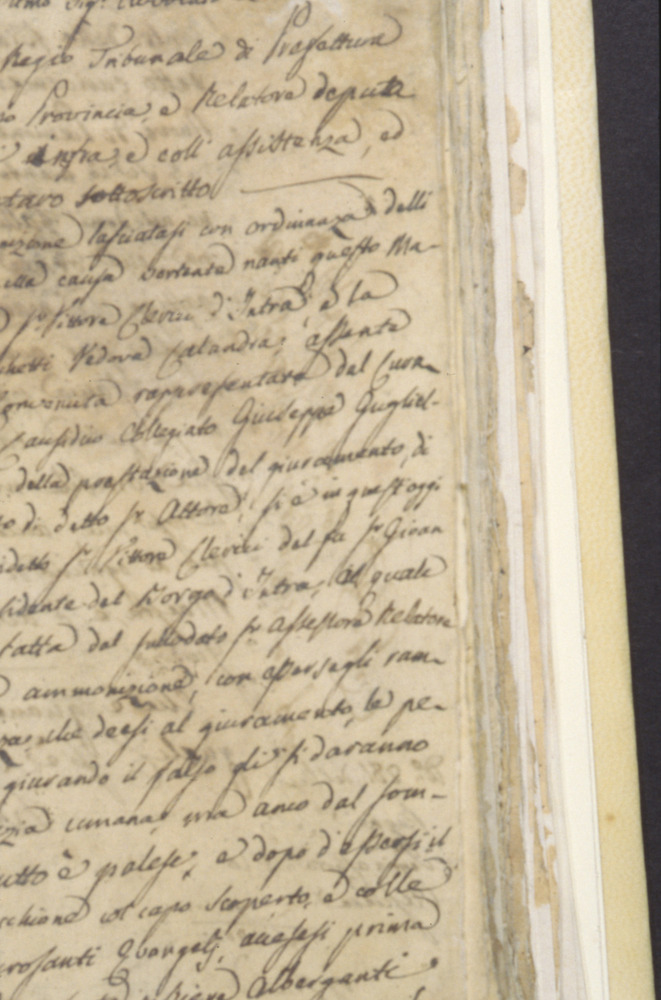 Regio Tribunale di Prefettura
Provincia, e Relatore deputa
infra, e coll' assistenza, ed
taro sottoscritto
izione lasciatasi con ordinanza delli
ella causa vertente nanti questo Ma-
Sr. Vittore Clerici d'Intra, e la
chetti Vedova Calandra, assente
Convenuta rappresentata dal Caus-
Causidico Collegiato Giuseppe Gugliel-
della prestazione del giuramento, di
di detto Sr. Attore, si è in quest'oggi
detto Sr. Vittore Clerici del fu Sr. Gioan
sidente del Borgo d'Intra, al quale
fatta dal sullodato Sr. Assessore Relatore
ammonizione, con essersegli ram-
za, che deesi al giuramento, le pe-
giurando il falso gli si daranno
izia umana, ma anco dal Som-
utto è palese, e dopo d'essersi il
cchione col capo scoperto, e colle
crosanti Evangelj, accesesi prima
Alberganti